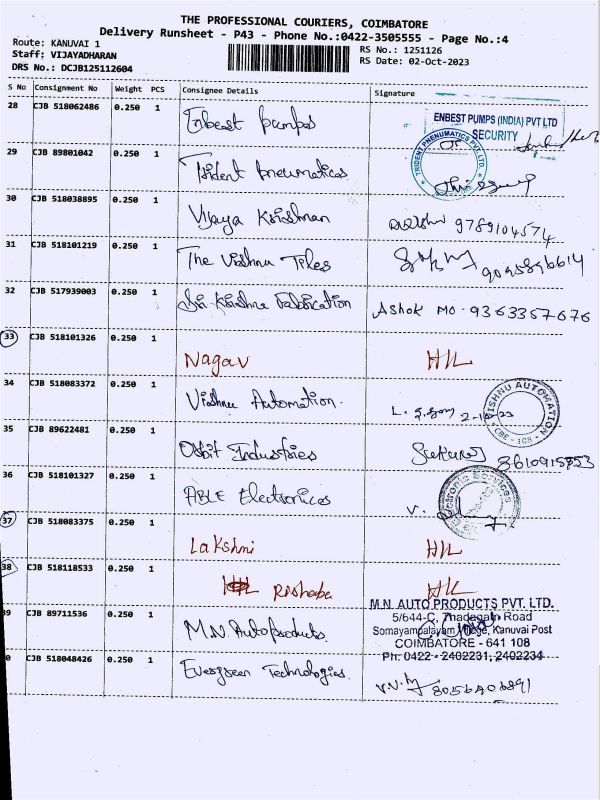 THE PROFESSIONAL COURIERS, COIMBATORE
Delivery Runsheet - P43 - Phone No.:0422-3505555 - Page No.:4
Route: KANUVAI 1
Staff: VIJAYADHARAN
DRS No.: DCJB125112604
RS No.: 1251126
RS Date: 02-Oct-2023
S No Consignment No Weight PCS Consignee Details Signature
28 CJB 518062486 0.250 1 Enbest Pumps
ENBEST PUMPS (INDIA) PVT LTD
SECURITY
29 CJB 89801042 0.250 1 Trident Pneumatics
TRIDENT PNEUMATICS PVT. LTD.
30 CJB 518038895 0.250 1 Vijaya Krishnan 9789104574
31 CJB 518101219 0.250 1 The Vishnu Tiles
32 CJB 517939003 0.250 1 Sri Krishna Fabrication Ashok MO. 9363357676
33 CJB 518101326 0.250 1 Nagav H/L
34 CJB 518083372 0.250 1 Vishnu Automation.
VISHNU AUTOMATION
CBE
35 CJB 89622481 0.250 1 Orbit Industries
36 CJB 518101327 0.250 1 ABLE Electronices
37 CJB 518083375 0.250 1 Lakshmi H/L
38 CJB 518118533 0.250 1 H/L
39 CJB 89711536 0.250 1 M.N. Autoproducts.
M.N. AUTO PRODUCTS PVT. LTD.
5/644-C, Thadagam Road
Somayampalayam Village, Kanuvai Post
COIMBATORE - 641 108
Ph: 0422 - 2402231, 2402234
0 CJB 518048426 0.250 1 Evergreen Technologies.